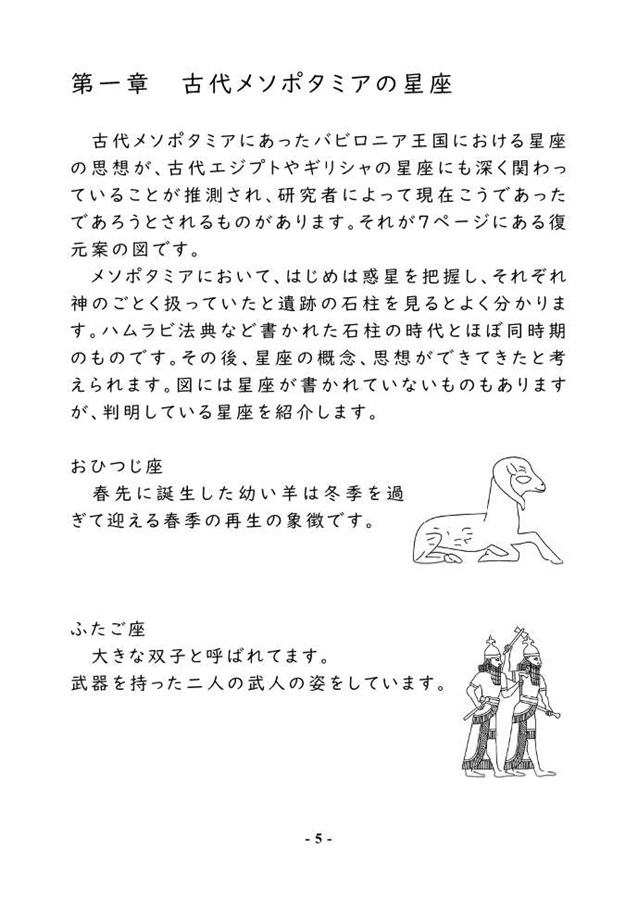 第一章　古代メソポタミアの星座
　古代メソポタミアにあったバビロニア王国における星座
の思想が、古代エジプトやギリシャの星座にも深く関わっ
ていることが推測され、研究者によって現在こうであった
であろうとされるものがあります。それが7ページにある復
元案の図です。
　メソポタミアにおいて、はじめは惑星を把握し、それぞれ
神のごとく扱っていたと遺跡の石柱を見るとよく分かりま
す。ハムラビ法典など書かれた石柱の時代とほぼ同時期
のものです。その後、星座の概念、思想ができてきたと考
えられます。図には星座が書かれていないものもあります
が、判明している星座を紹介します。
おひつじ座
　春先に誕生した幼い羊は冬季を過
ぎて迎える春季の再生の象徴です。
ふたご座
　大きな双子と呼ばれてます。
武器を持った二人の武人の姿をしています。
- 5 -